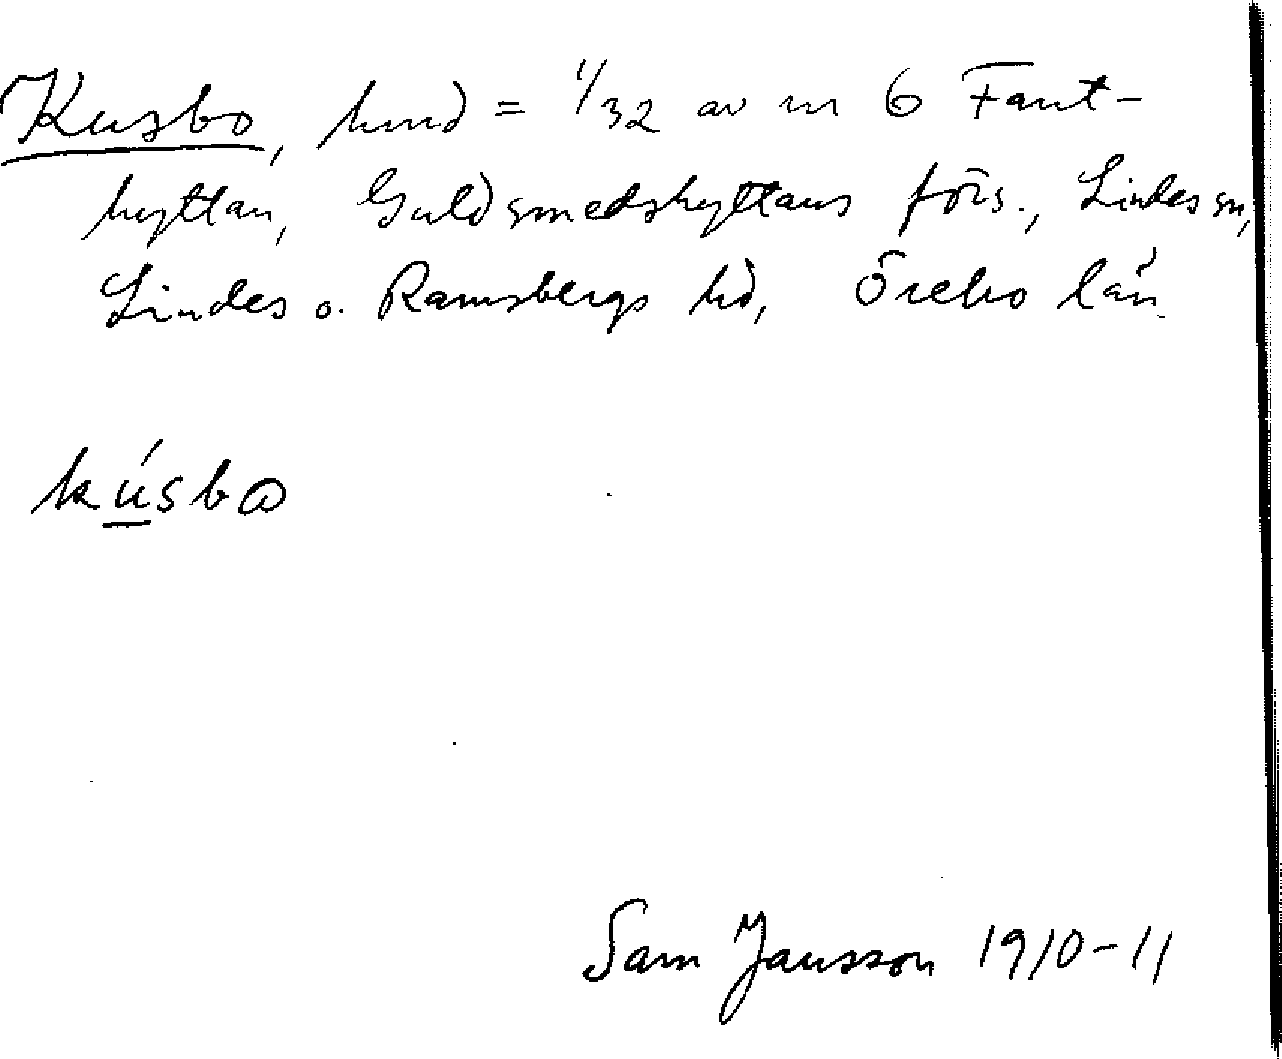 Kusbo, hmd = 1/32 av nr 6 Fant-
hyttan, Guldsmedshyttans förs., Lindes sn,
Lindes o. Ramsbergs hd, Örebro län
kúsbω
Sam Jansson 1910-11